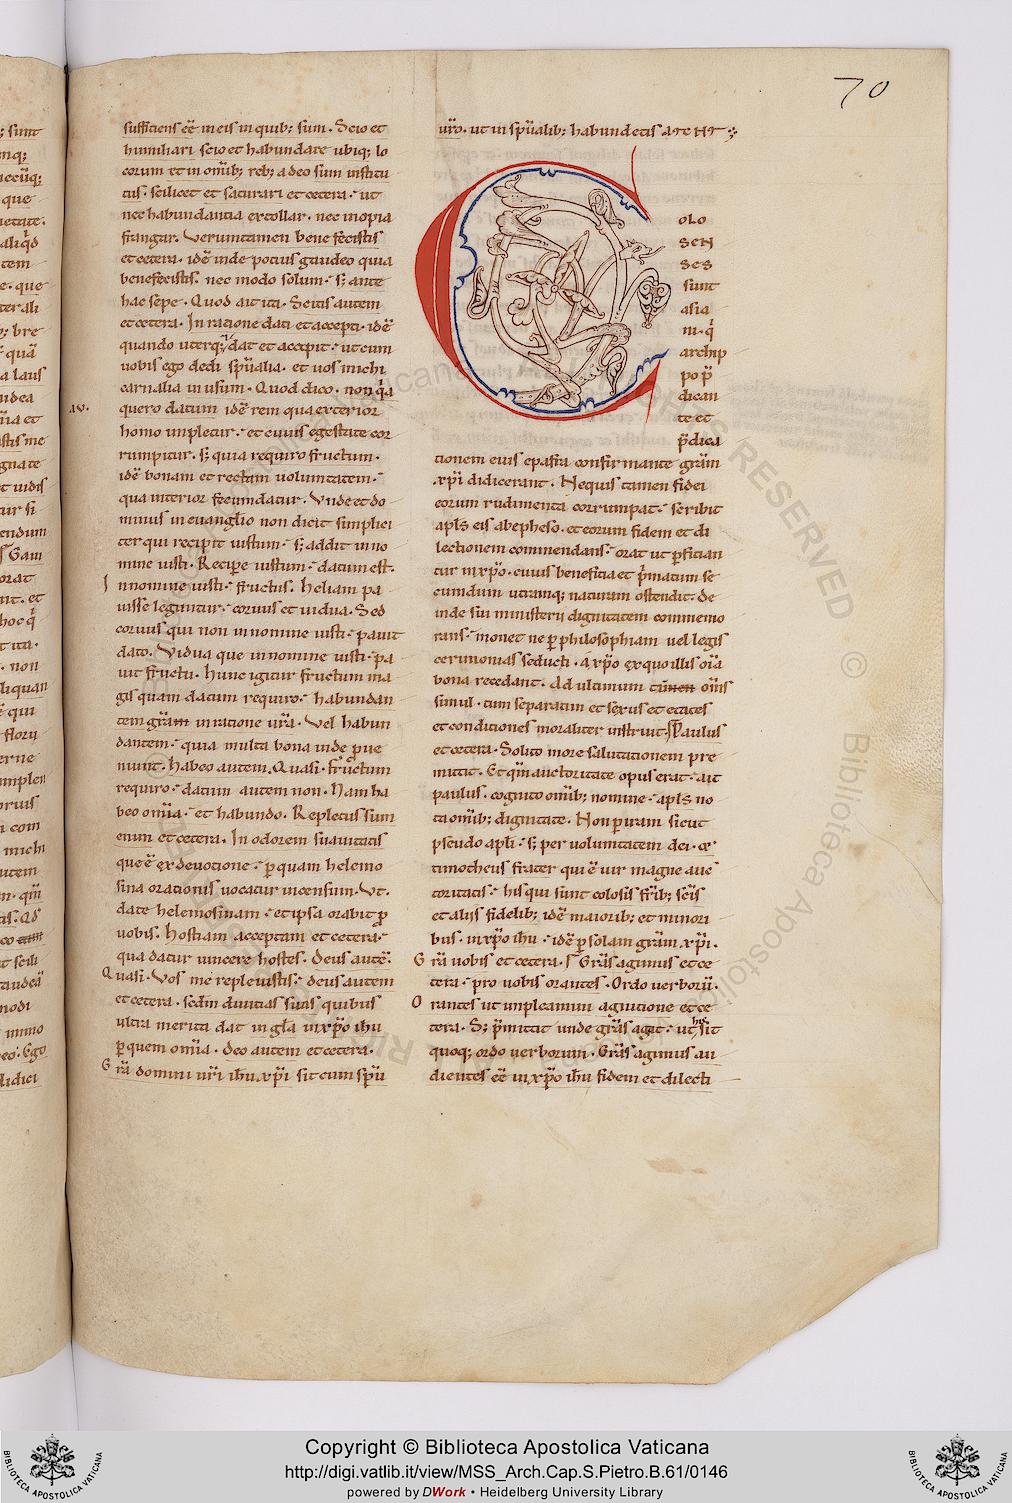 70
sufficiens eē meis in quib; sum. Scio et
humiliari scio et habundare ubiq; lo
corum et in om̄ib; reb; adeo sum institu
tus. scilicet et saturari et cetera. ut
nec habundantia extollar. nec inopia
frangar. Verumtamen bene fecistis
et cetera. idē inde potius gaudeo quia
benefecistis. nec modo solum. s; ante
hac sepe. Quod ait ita. Scitis autem
et cetera. In ratione dati et accepti. idē
quando uterq; dat et accepit. ut cum
uobis ego dedi sp̄ualia. et uos michi
carnalia in usum. Quod dico. non q̄a
quero datum idē rem qua exterior
homo impletur. et cuius egestate cor
rumpitur. s; quia requiro fructum.
idē bonam et rectam uoluntatem.
qua interior fecundatur. Vnde et do
minus in euanglio non dicit simplici
ter qui recipit iustum. s; addit in no
mine iusti. Recipe iustum. datum est.
In nomine iusti. fructus. Heliam pa
uisse leguntur. coruus et uidua. Sed
coruus qui non in nomine iusti. pauit
dato. Vidua que in nomine iusti. pa
uit fructu. Hunc igitur fructum ma
gis quam datum requiro. habundan
tem grām in ratione ur̄a. Vel habun
dantem. quia multa bona inde pue
niunt. habeo autem. Quasi. fructum
requiro. datum autem non. Nam ha
beo om̄ia. et habundo. Repletus sum
enim et cetera. In odorem suauitatis
que ē ex deuotione. p quam helemo
sina orationis uocatur incensum. Vt.
date helemosinam. et ipsa orabit p
uobis. Hostiam acceptam et cetera.
qua datur uincere hostes. Deus autē.
Quasi. Vos me repleuistis. deus autem
et cetera. sed̄m diuitias suas quibus
ultra merita dat in gl̄a in xp̄o ihu
p quem om̄ia. deo autem et cetera.
Gr̄a domini ur̄i ih̄u xp̄i sit cum sp̄u
ur̄o. ut in sp̄ualib; habundetis
C
OLO
SEN
SES
sunt
asia
ni. q̄
archip
po p̄
dican
te et
p̄dica
tionem eius epafra confirmante grām
xp̄i didicerant. Ne quis tamen fidei
eorum rudimenta corrumpat. scribit
apl̄s eis ab epheso. et eorum fidem et di
lectionem commendans. orat ut pfician
tur in xp̄o. cuius beneficia et p̄matum se
cundum utramq; naturam ostendit. de
inde sui ministerij dignitatem commemo
rans. monet ne p philosophiam uel legis
cerimonias seducti. a xp̄o ex quo illis om̄ia
bona recedant. Ad ultimum tamen om̄s
simul. tum separatim et sexus et etates
et conditiones moraliter instruit. Paulus
et cetera. Solito more salutationem pre
mittit. Et qm̄ auctoritate opus erat. ait
paulus. cognito om̄ib; nomine. apl̄s no
ta om̄ib; dignitate. Non p iram sicut
pseudo apli. s; per uoluntatem dei. et
timotheus frater qui ē uir magne auc
toritatis. his qui sunt colosis fr̄ib; sc̄is
et alijs fidelib; idē maiorib; et minori
bus. in xp̄o ihu. idē p solam grām xp̄i.
Gr̄a uobis et cetera. Gr̄as agimus et ce
tera. pro uobis orantes. Ordo uerborū.
Orantes ut impleamini agnitione et ce
tera. S; p̄mittit unde gr̄as agat. ut hic sit
quoq; ordo uerborum. Gr̄as agimus au
dientes eē in xp̄o ihu fidem et dilecti
Copyright © Biblioteca Apostolica Vaticana
http://digi.vatlib.it/view/MSS_Arch.Cap.S.Pietro.B.61/0146
powered by DWork • Heidelberg University Library
BIBLIOTECA APOSTOLICA VATICANA
BIBLIOTECA APOSTOLICA VATICANA